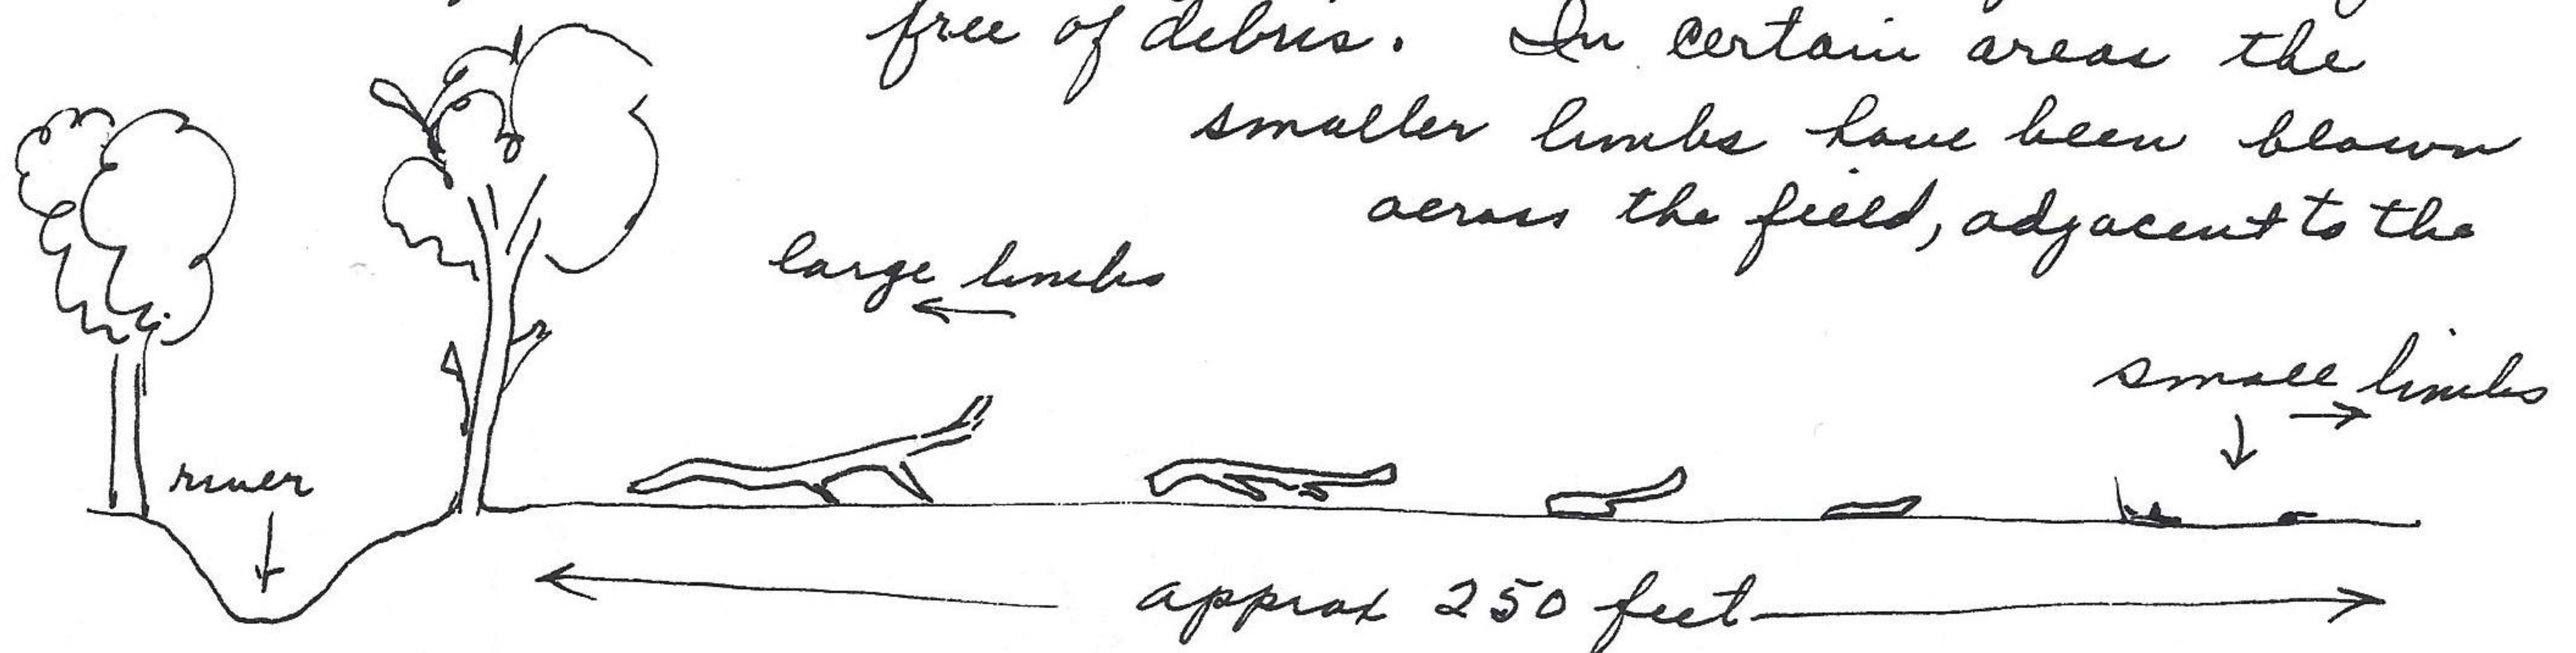 free of debris. In certain areas the
smaller limbs have been blown
across the field, adjacent to the
large limbs
small limbs
river
approx 250 feet